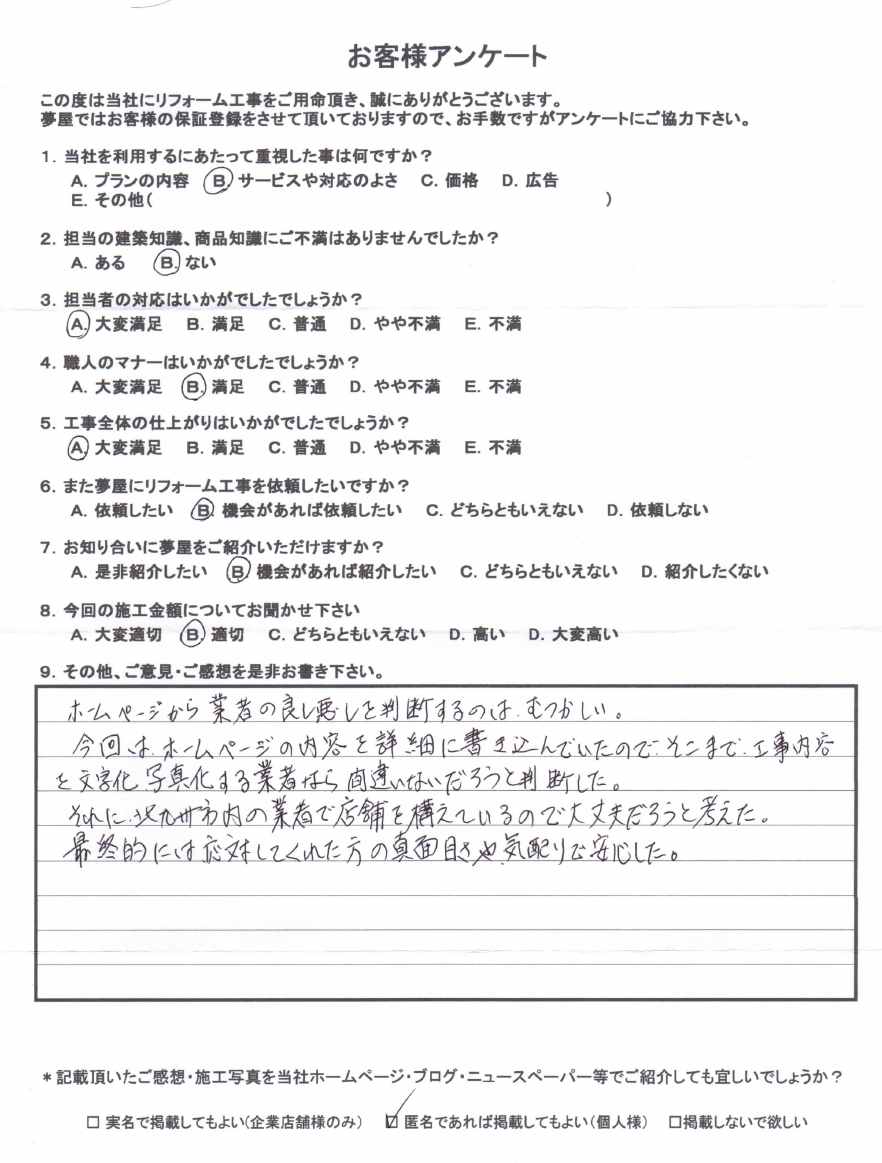 お客様アンケート
この度は当社にリフォーム工事をご用命頂き、誠にありがとうございます。
夢屋ではお客様の保証登録をさせて頂いておりますので、お手数ですがアンケートにご協力下さい。
1. 当社を利用するにあたって重視した事は何ですか？
A. プランの内容 B. サービスや対応のよさ C. 価格 D. 広告
E. その他( )
2. 担当の建築知識、商品知識にご不満はありませんでしたか？
A. ある B. ない
3. 担当者の対応はいかがでしたでしょうか？
A. 大変満足 B. 満足 C. 普通 D. やや不満 E. 不満
4. 職人のマナーはいかがでしたでしょうか？
A. 大変満足 B. 満足 C. 普通 D. やや不満 E. 不満
5. 工事全体の仕上がりはいかがでしたでしょうか？
A. 大変満足 B. 満足 C. 普通 D. やや不満 E. 不満
6. また夢屋にリフォーム工事を依頼したいですか？
A. 依頼したい B. 機会があれば依頼したい C. どちらともいえない D. 依頼しない
7. お知り合いに夢屋をご紹介いただけますか？
A. 是非紹介したい B. 機会があれば紹介したい C. どちらともいえない D. 紹介したくない
8. 今回の施工金額についてお聞かせ下さい
A. 大変適切 B. 適切 C. どちらともいえない D. 高い D. 大変高い
9. その他、ご意見・ご感想を是非お書き下さい。
ホームページから業者の良し悪しを判断するのは、むつかしい。
今回は、ホームページの内容を詳細に書き込んでいたので、そこまで、工事内容
を文字化、写真化する業者なら間違いないだろうと判断した。
それに、北九州市内の業者で店舗を構えているので大丈夫だろうと考えた。
最終的には応対してくれた方の真面目さや気配りで安心した。
*記載頂いたご感想・施工写真を当社ホームページ・ブログ・ニュースペーパー等でご紹介しても宜しいでしょうか？
□ 実名で掲載してもよい(企業店舗様のみ) ☑ 匿名であれば掲載してもよい(個人様) □掲載しないで欲しい